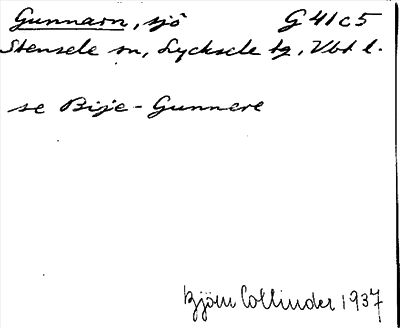 Gunnarn, sjö G 41 c 5
Stensele sn, Lycksele tg, Vbt l.
se Bije-Gunnere
Björn Collinder 1937